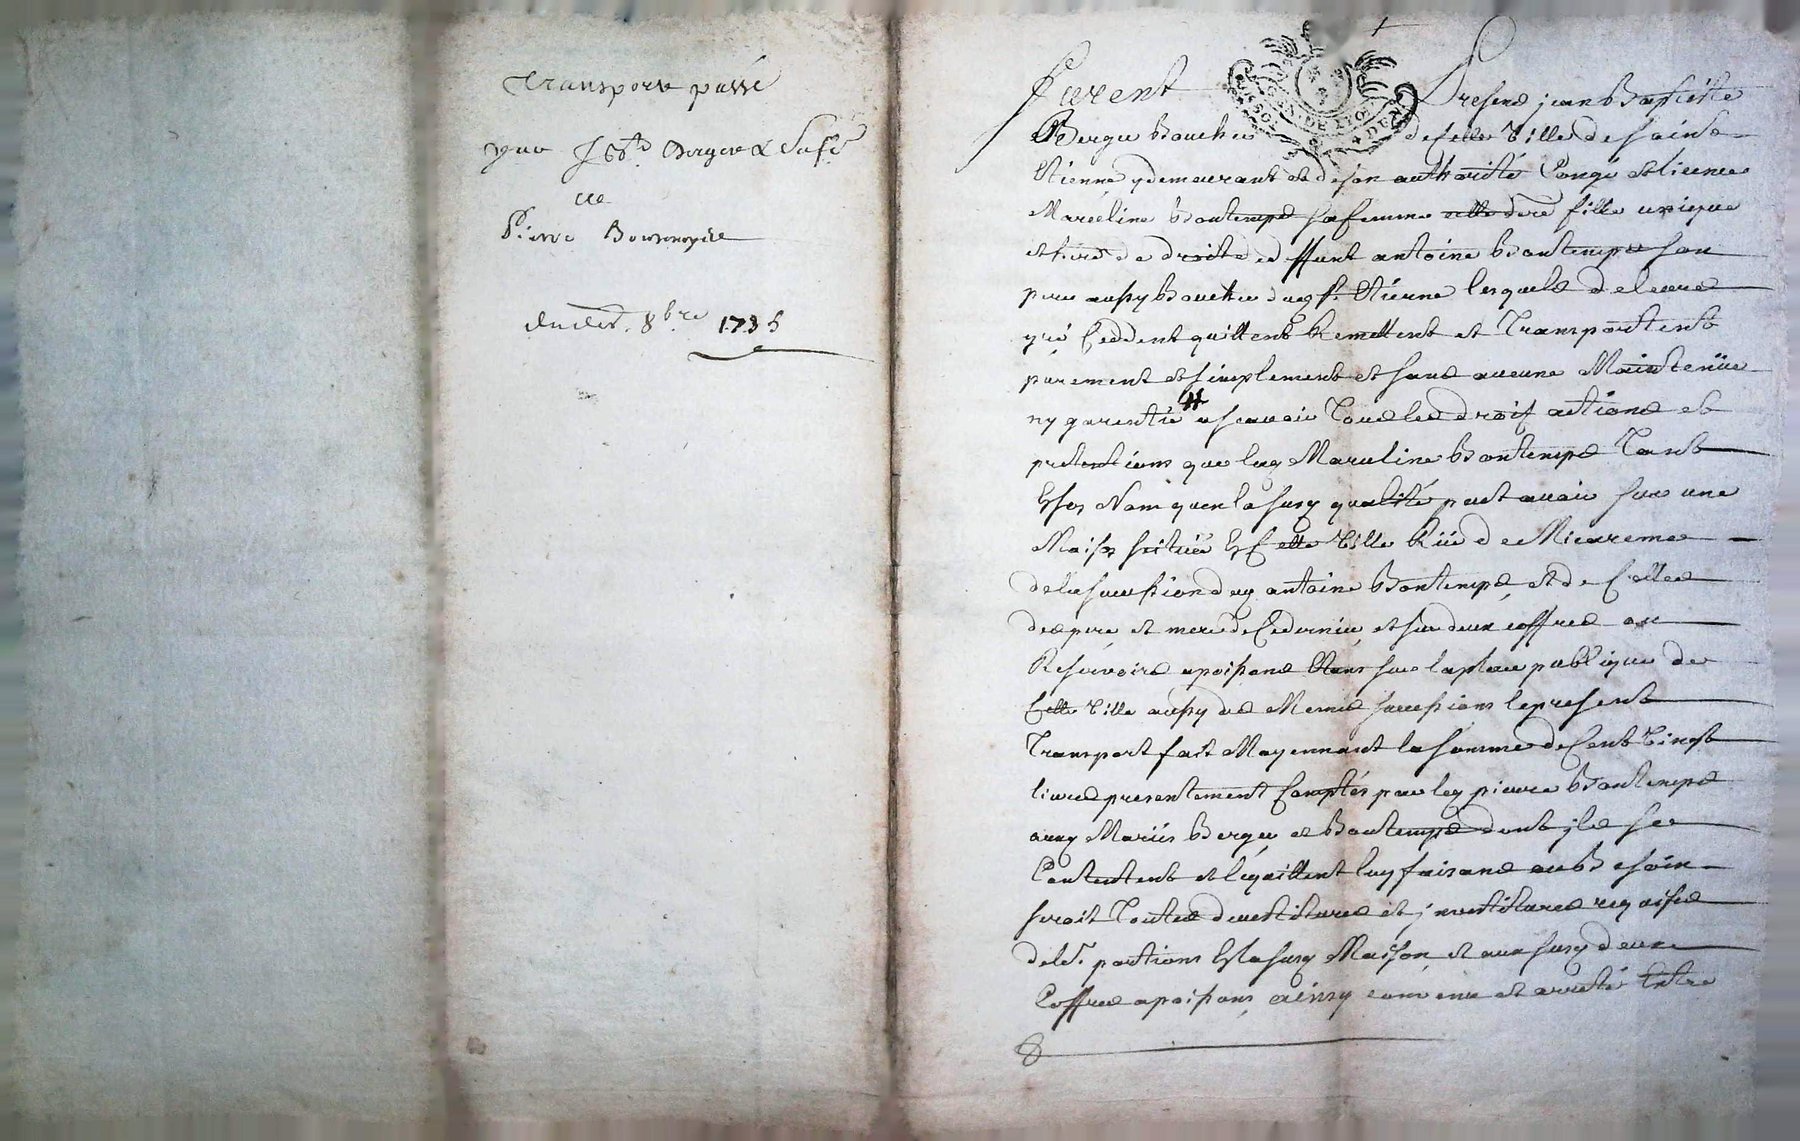 Transport passé
par J Bte Berger & sa fe
a
Pierre Bontemps
du 8bre 1735
Furent Presens jean Baptiste
Berger Boucher de cette Ville de saint
Etienne y demeurant et de son authorité Congé et licence
Marceline Bontemps sa femme fille unique
et de droit de deffunt antoine Bontemps son
pere aussy Boucher dud St. Etienne lesquels de leurs
gré Ceddent quittent Remettent et Transportent
purement et simplement et sans aucune Maintenüe
ny garentie a scavoir Tous les droit actions et
pretentions que lad Marceline Bontemps Tant
En son Nom quen la susd qualité peut avoir sur une
Maison scituée En cette Ville Rüe de Micareme
de la succession dud antoine Bontemps et de Celles
des pere et mere de Ce dernier et sur deux coffres ou
Reservoirs a poissons Etans sur la place publique de
Cette Ville aussy des Memes successions le present
Transport fait Moyennant la somme de Cent Vingt
livres presentement Comptés par led pierre Bontemps
auxd Mariés Berger et Bontemps dont ils se
Contentent et l'quittent luy faisans au Besoin
seroit Toutes devestitures et investitures requises
desd. portions En la susd Maison et aux susd deux
Coffres a poissons ainsy convenu et arreté Entre